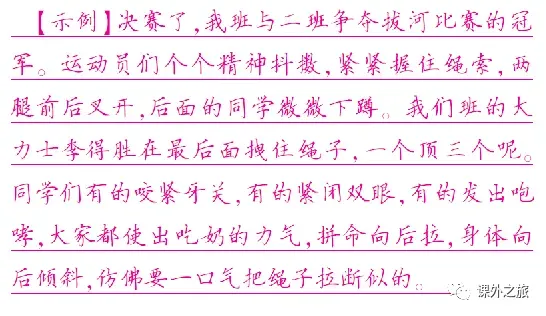 【示例】决赛了,我班与二班争夺拔河比赛的冠
军。运动员们个个精神抖擞,紧紧握住绳索,两
腿前后叉开,后面的同学微微下蹲。我们班的大
力士李得胜在最后面拽住绳子,一个顶三个呢。
同学们有的咬紧牙关,有的紧闭双眼,有的发出咆
哮,大家都使出吃奶的力气,拼命向后拉,身体向
后倾斜,仿佛要一口气把绳子拉断似的。
课外之旅